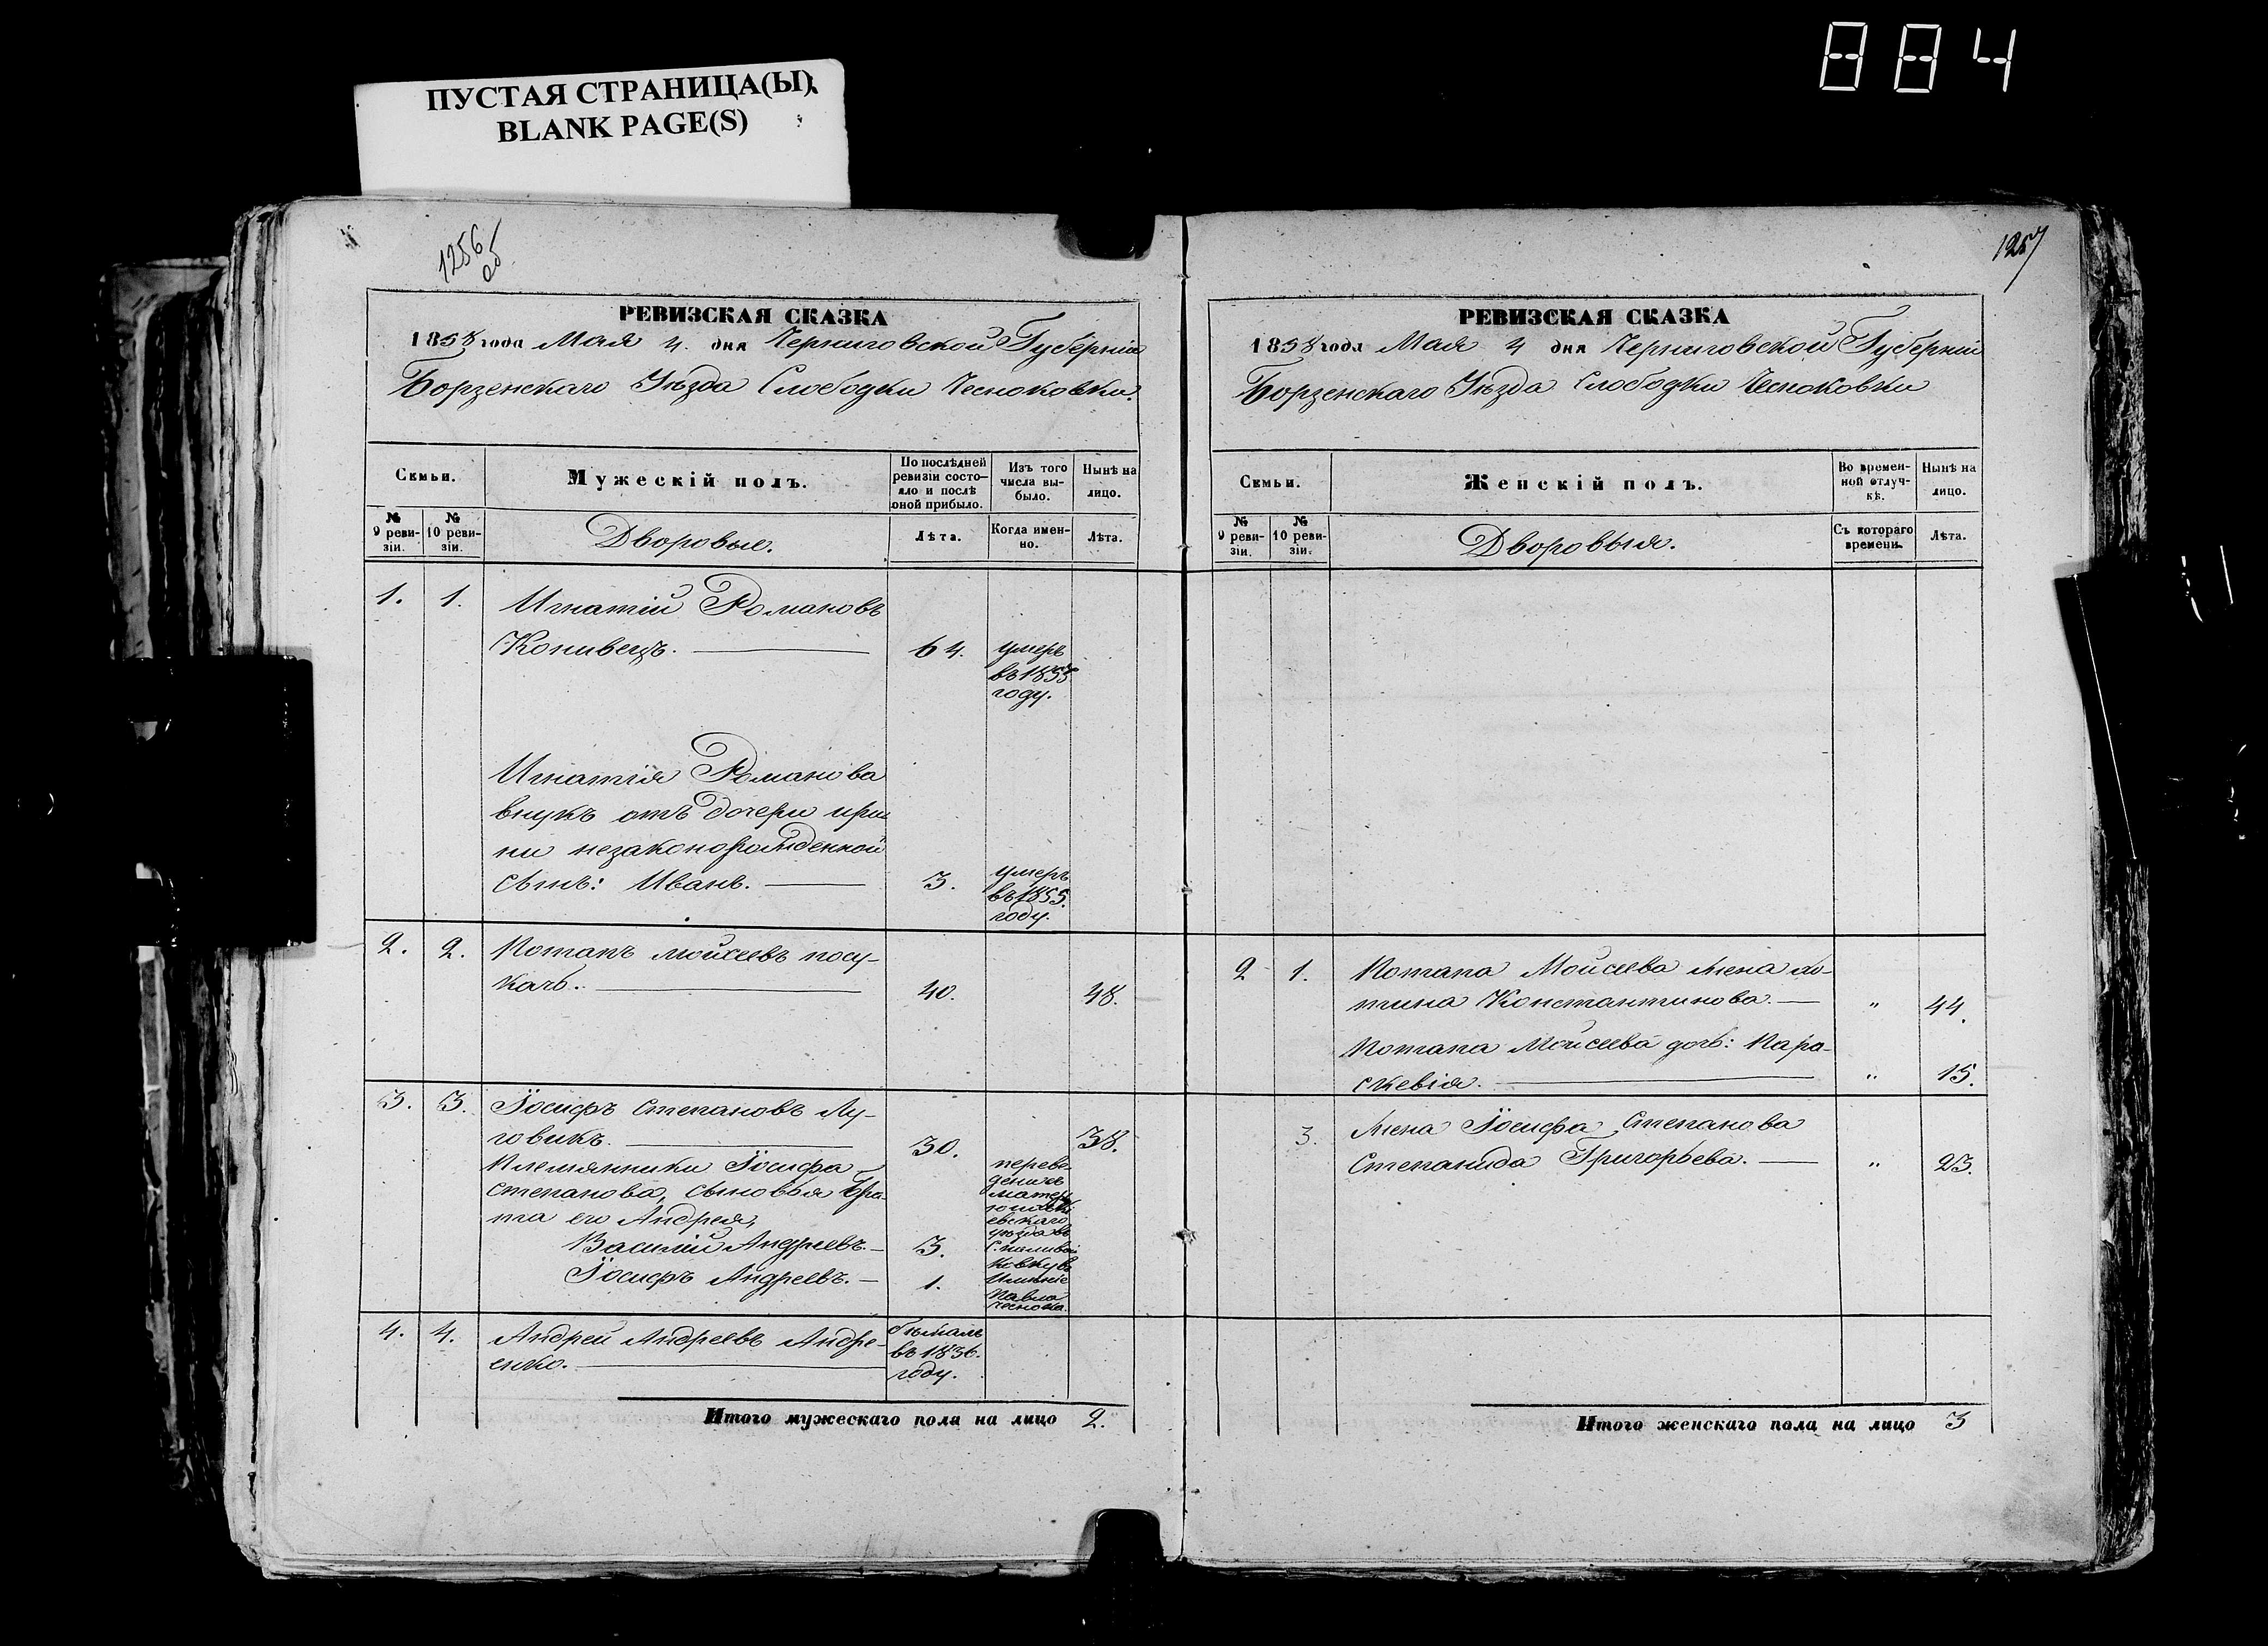 884
ПУСТАЯ СТРАНИЦА(Ы)
BLANK PAGE(S)
1256
об
РЕВИЗСКАЯ СКАЗКА
1858 года Мая 4. дня Черниговской Губерніи
Борзенскаго Уѣзда Слободки Чесноковки.
Семьи.
Мужескій полъ.
По послѣдней ревизіи состояло и послѣ оной прибыло.
Изъ того числа выбыло.
Нынѣ на лицо.
№ 9 ревизіи.
№ 10 ревизіи.
Дворовые.
Лѣта.
Когда именно.
Лѣта.
1. 1. Игнатій Романовъ
Конивецъ. 64. умеръ
въ 1855
году.
Игнатія Романова
внукъ отъ дочери Ири
ни незаконорожденной
сынъ: Иванъ. 3. умеръ
въ 1855.
году.
2. 2. Потапъ Мойсеевъ Посу-
качъ. 40. 48.
3. 3. Іосифъ Степановъ Лу-
говикъ. 30. 38.
Племянники Іосифа
Степанова, сыновья бра-
та его Андрея,
Василій Андреевъ. 3.
Іосифъ Андреевъ. 1.
переве-
дени въ
уѣзда въ
имѣніе
Павла
Чеснока.
4. 4. Андрей Андреевъ Андре-
енко. бѣжалъ
въ 1836.
году.
Итого мужескаго пола на лицо 2.
1257
РЕВИЗСКАЯ СКАЗКА
1858 года Мая 4 дня Черниговской Губерніи
Борзенскаго Уѣзда Слободки Чесноковки
Семьи.
Женскій полъ.
Во временной отлучкѣ.
Нынѣ на лицо.
№ 9 ревизіи.
№ 10 ревизіи.
Дворовыя.
Съ котораго времени.
Лѣта.
2 1. Потапа Мойсеева жена
Константинова. " 44.
Потапа Мойсеева дочь: Пара-
скевія. " 15.
3. Жена Іосифа Степанова
Степанида Григорьева. " 23.
Итого женскаго пола на лицо 3